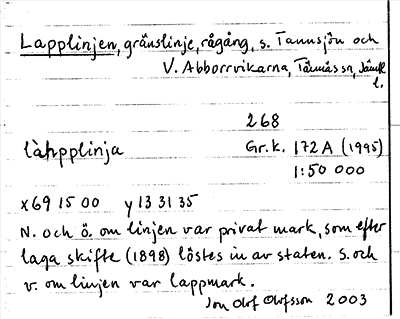 Lapplinjen, gränslinje, rågång, s. Tannsjön och
V. Abborrvikarna, Tännäs sn, Jämtl
l.
268
làhpplinja
Gr.k. 172 A (1995)
1:50 000
x69 15 00 y13 31 35
N. och ö. om linjen var privat mark, som efter
laga skifte (1898) löstes in av staten. S. och
v. om linjen var lappmark.
Jon Olof Olofsson 2003